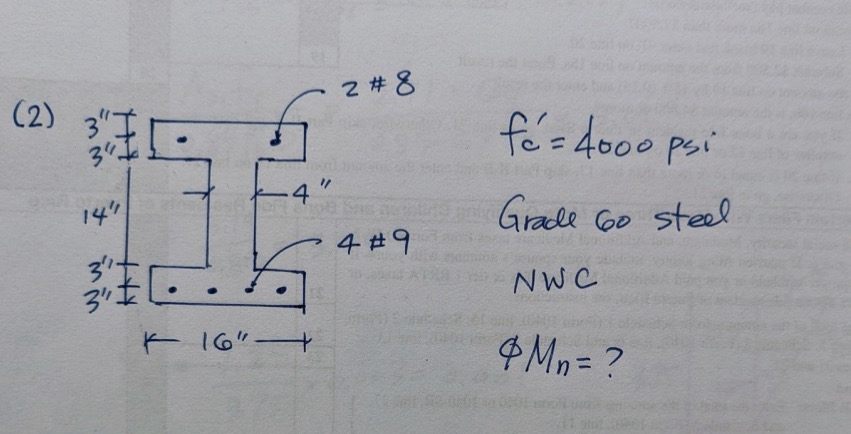 (2)
2 #8
3"
3"
4"
14"
4 #9
3"
3"
16"
fc' = 4000 psi
Grade 60 steel
NWC
φMn = ?